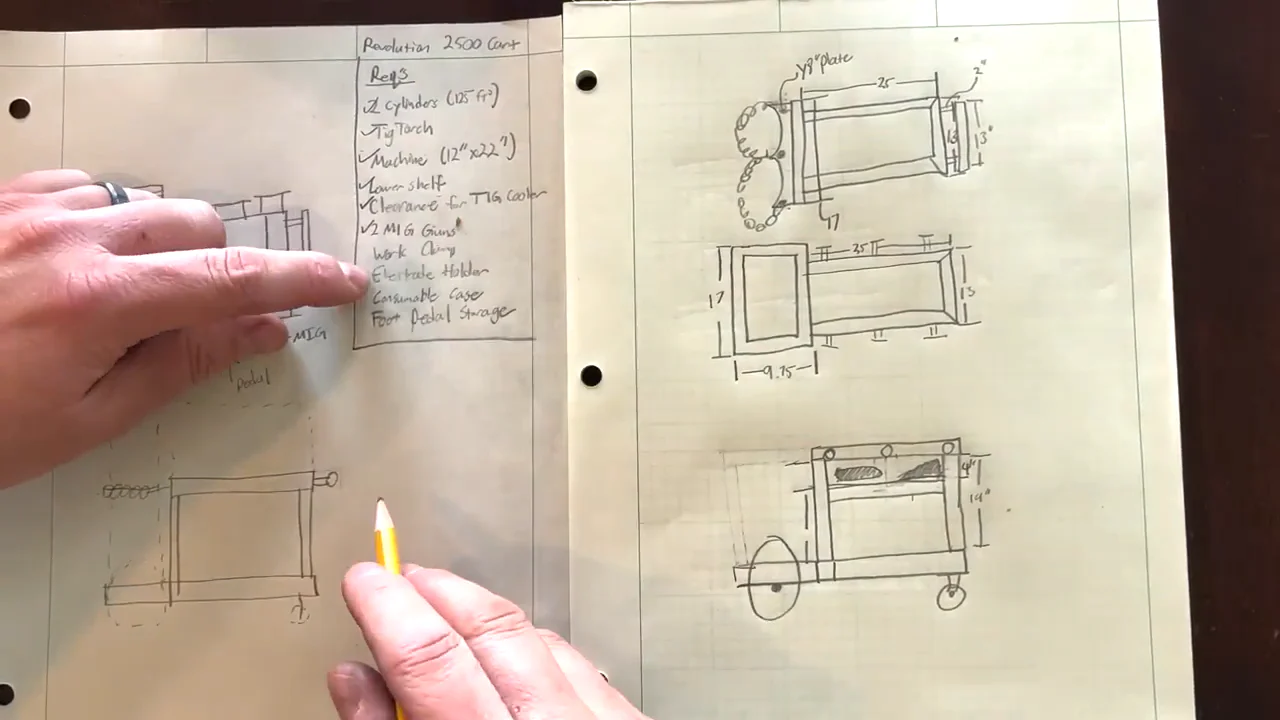 Revolution 2500 Cart
Req's
✓2 Cylinders (125 ft³)
✓Tig Torch
✓Machine (12" x 22")
✓Lower shelf
✓Clearance for TIG Cooler
✓2 MIG Guns
Work Clamp
Electrode Holder
Consumable Case
Foot Pedal Storage
MIG
Pedal
1/8" Plate
25
2"
13
13"
17
25
17
13
9.75
4"
14"